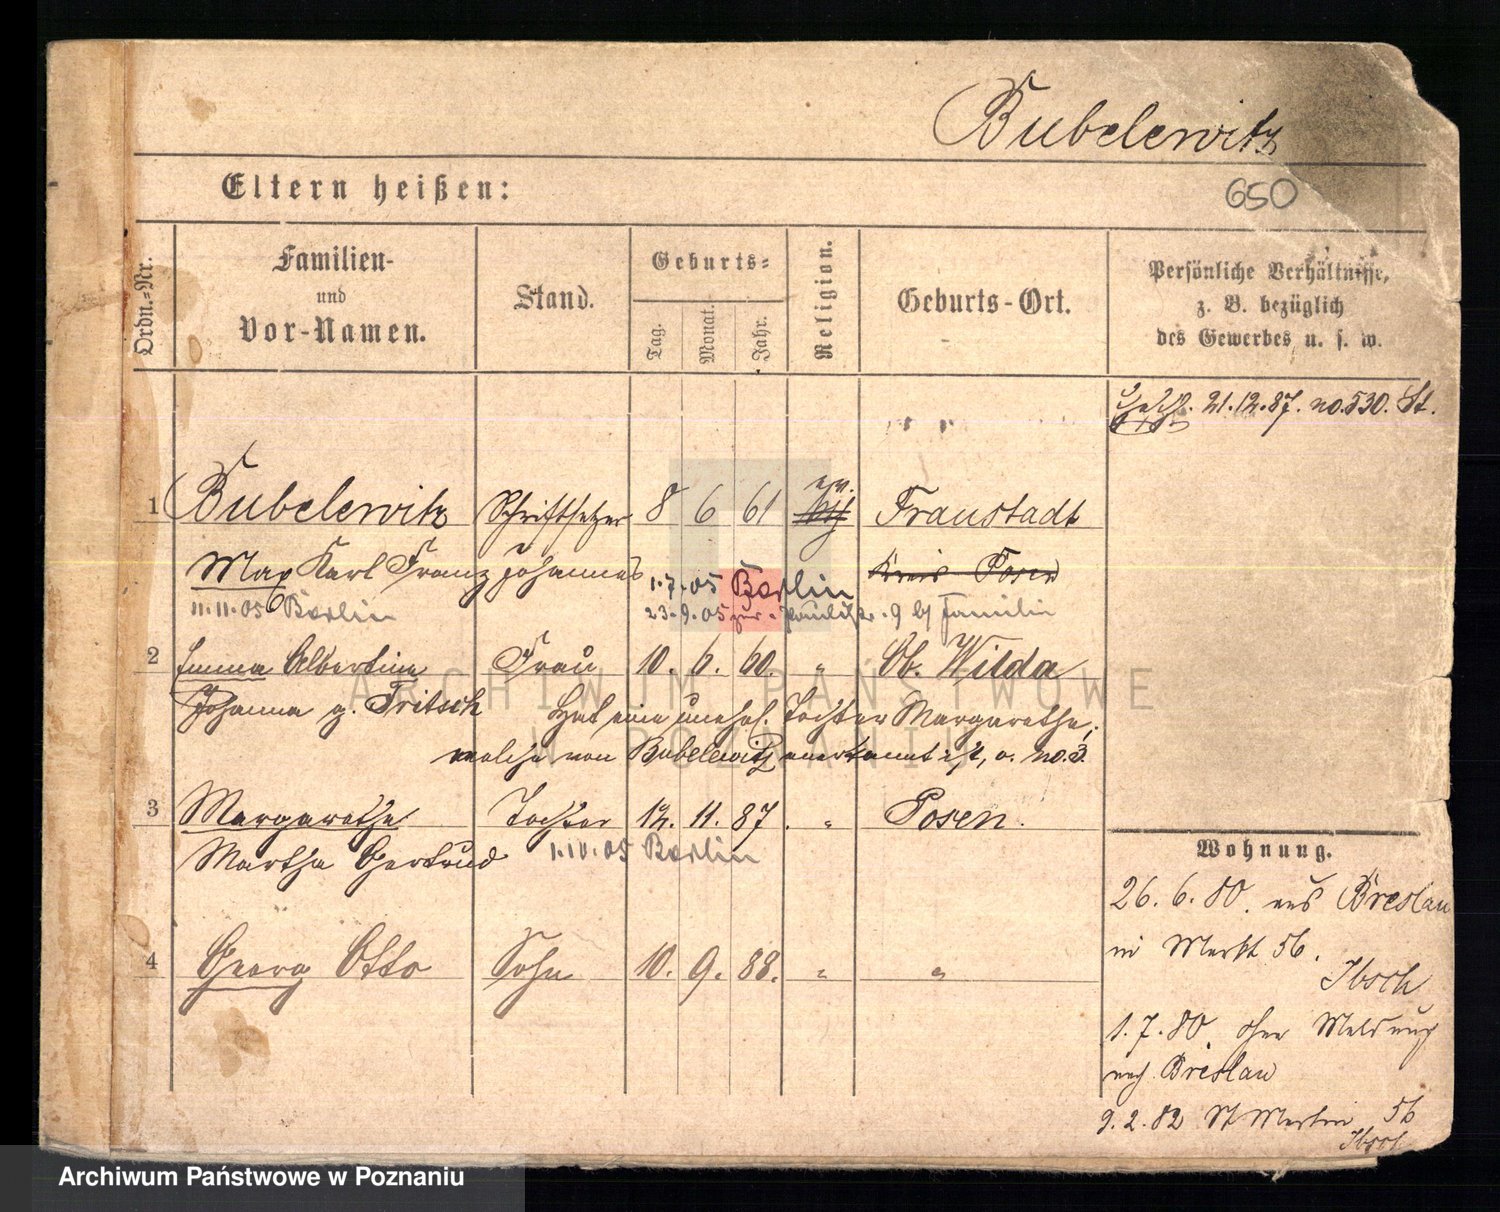 Bubelewitz
Eltern heißen:
650
Ordn.-Nr.
Familien-
und
Vor-Namen.
Stand.
Geburts-
Tag.
Monat.
Jahr.
Religion.
Geburts-Ort.
Persönliche Verhältnisse,
z. B. bezüglich
des Gewerbes u. s. w.
21.12.87. no. 530. St.
1 Bubelewitz Schriftsetzer 8 6 61 ev. Fraustadt
Max Karl Franz Johannes Kreis Posen
1.7.05 Berlin
11.11.05 Berlin 23.9.05 zur Familie
2 Emma Albertine Frau 10. 6. 60. " Ob. Wilda
Johanna g. Fritsch Hat eine unehel. Tochter Margarethe,
welche von Bubelewitz anerkannt ist, s. no. 3.
3 Margarethe Tochter 12. 11. 87. " Posen.
Martha Gertrud 1.10.05 Berlin
4 Georg Otto Sohn 10. 9. 88. " "
Wohnung.
26. 6. 80. aus Breslau
in Markt 56.
Ibsch
1. 7. 80. ohne Meldung
nach Breslau
9. 2. 82 St Martin 56
Ibsch
ARCHIWUM PAŃSTWOWE
W POZNANIU
Archiwum Państwowe w Poznaniu